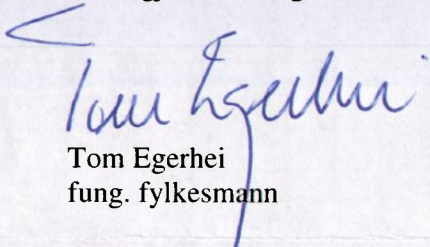 Tom Egerhei
Tom Egerhei
fung. fylkesmann